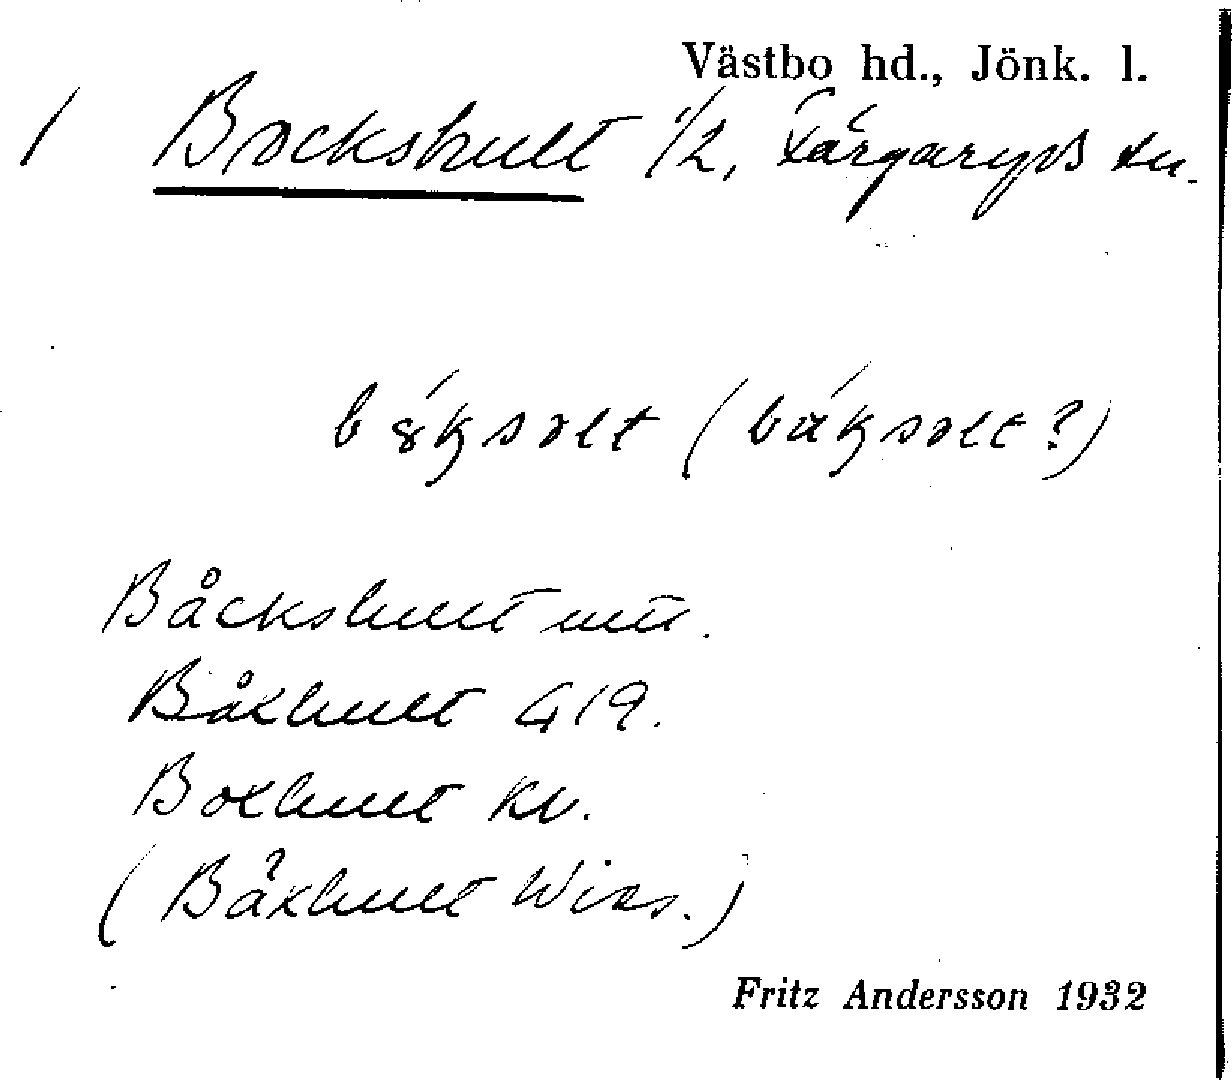 Västbo hd., Jönk. l.
1 Bockshult 1/2, Färgaryds sn.
b8́ksolt (báksolt?)
Båckshult mtl.
Båkhult G19.
Bokhult Kv.
(Båxhult Wies.)
Fritz Andersson 1932